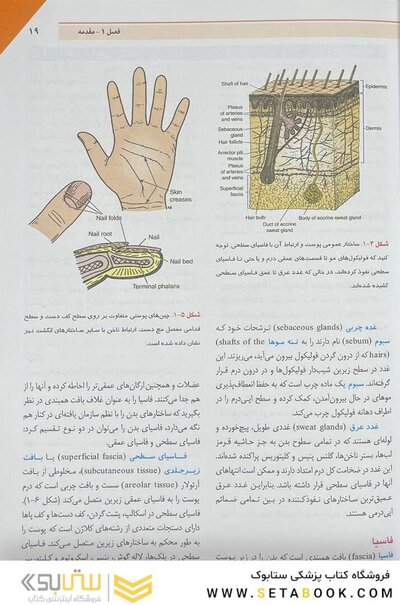 فصل ۱ - مقدمه
۱۹
Shaft of hair
Epidermis
Plexus
of arteries
and veins
Sebaceous
gland
Hair follicle
Dermis
Arrector pili
muscle
Plexus
of arteries
and veins
Superficial
fascia
Hair bulb
Body of eccrine sweat gland
Duct of eccrine
sweat gland
شکل ۳-۱. ساختار عمومی پوست و ارتباط آن با فاسیای سطحی. توجه
کنید که فولیکول‌های مو تا قسمت‌های عمقی درم و یا حتی تا فاسیای
سطحی نفوذ کرده‌اند، در حالی که غدد عرق تا عمق فاسیای سطحی
کشیده شده‌اند.
غده چربی (sebaceous glands) ترشحات خود که
سبوم (sebum) نام دارند را به تنه موها (shafts of the
hairs) که از درون گردن فولیکول بیرون می‌آید، می‌ریزند. این
غدد در سطح زیرین شیب‌دار فولیکول‌ها و در درون درم قرار
گرفته‌اند. سبوم یک ماده چرب است که به حفظ انعطاف‌پذیری
موهای در حال بیرون‌آمدن، کمک کرده و سطح اپی‌درم را در
اطراف دهانه فولیکول چرب می‌کند.
غدد عرق (sweat glands) غددی طویل، پیچ‌خورده و
لوله‌ای هستند که در تمامی سطوح بدن به جز حاشیه قرمز
لب‌ها، بستر ناخن‌ها، گلنس پنیس و کلیتوریس پراکنده شده‌اند.
این غدد در ضخامت کل درم امتداد دارند و ممکن است انتهای
آن‌ها در فاسیای سطحی قرار داشته باشد. بنابراین غدد عرق
عمیق‌ترین ساختارهای نفوذکننده در بین تمامی ضمائم
اپی‌درمی هستند.
فاسیا
فاسیا (fascia) بافت همبندی است که بدن را در زیر پوست
Skin
creases
Nail folds
Nail root
Nail
Nail bed
Terminal phalanx
شکل ۵-۱. چین‌های پوستی متفاوت بر روی سطح کف دست و سطح
قدامی مفصل مچ دست. ارتباط ناخن با سایر ساختارهای انگشت نیز
نشان داده شده است.
عضلات و همچنین ارگان‌های عمقی‌تر را احاطه کرده و آنها را از
هم جدا می‌کنند. فاسیا را به عنوان غلاف بافت همبندی در نظر
بگیرید که ساختارهای بدن را با نظم سازمان یافته‌ای در کنار هم
نگه می‌دارد. فاسیای بدن را می‌توان در دو نوع تقسیم کرد:
فاسیای سطحی و فاسیای عمقی.
فاسیای سطحی (superficial fascia) یا بافت
زیرجلدی (subcutaneous tissue)، مخلوطی از بافت
آرئولار (areolar tissue) سست و بافت چربی است که درم
پوست را به فاسیای عمقی زیرین متصل می‌کند (شکل ۶-۱).
فاسیای سطحی در اسکالپ، پشت گردن، کف دست‌ها و کف پاها
دارای دستجات متعددی از رشته‌های کلاژن است که پوست را
به طور محکم به ساختارهای زیرین متصل می‌کند. فاسیای
سطحی در پلک‌ها، لاله گوش، پنیس، اسکروتوم و کلیتوریس
فروشگاه کتاب پزشکی ستابوک
WWW.SETABOOK.COM
ستابوک
فروشگاه اینترنتی کتاب